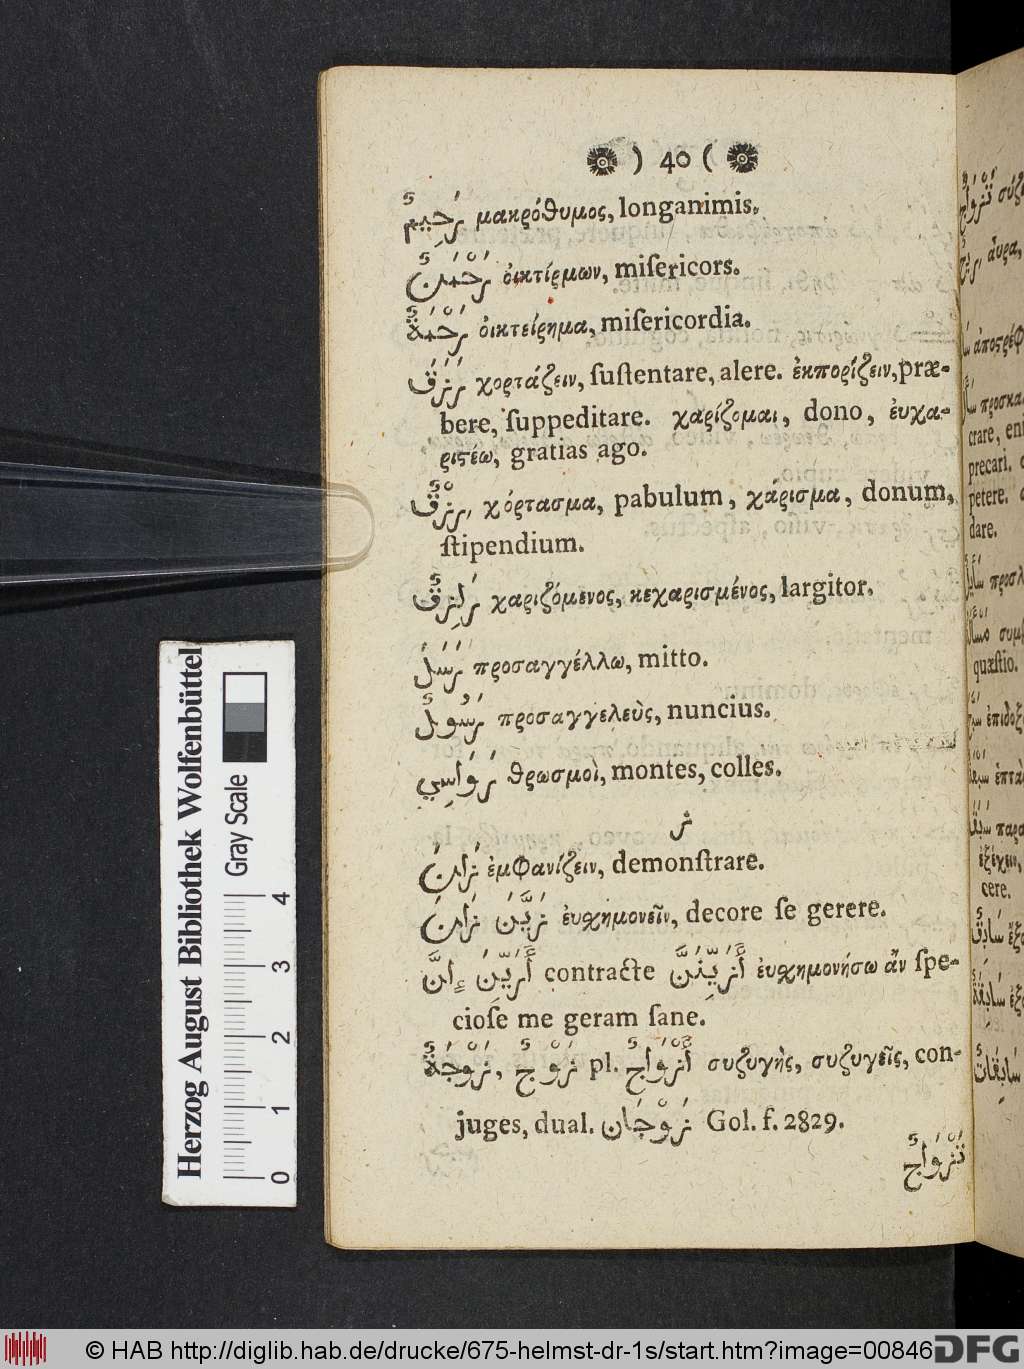 ) 40 (
رَحِيمٌ μακρόθυμος, longanimis.
رَحْمَنٌ ὀικτίρμων, miſericors.
رَحْمَةٌ ὀικτείρημα, miſericordia.
رَزَقَ χορτάζειν, ſuſtentare, alere. ἐκπορίζειν, præ-
bere, ſuppeditare. χαρίζομαι, dono, ἐυχα-
ριϛέω, gratias ago.
رِزْقٌ, χόρτασμα, pabulum, χάρισμα, donum,
ſtipendium.
رَازِقٌ χαριζόμενος, κεχαρισμένος, largitor.
رَسَلَ προσαγγέλλω, mitto.
رَسُولٌ προσαγγελεὺς, nuncius.
رَوَاسِي θρωσμοὶ, montes, colles.
ز
زَانَ ἐμφανίζειν, demonſtrare.
زَانَ زَيَّنَ ἐυσχημονεῖν, decore ſe gerere.
أُزَيِّنَ إِنَّ contracte أُزَيِّنَنَّ ἐυσχημονήσω ἂν ſpe-
cioſe me geram ſane.
زَوْجَةٌ, زَوْجٌ pl. أَزْوَاجٌ συζυγὴς, συζυγεῖς, con-
juges, dual. زَوْجَان Gol. f. 2829.
تَزْوَاجٌ
Herzog August Bibliothek Wolfenbüttel
Gray Scale
0 1 2 3 4
تَزْوَاجٌ
αὔρα,
προσκα
crare, en
precari.
petere.
dare.
quæſtio.
ἐπιδοξ
ἑπτὰ
παρα
ἐξέχειν,
cere.
© HAB http://diglib.hab.de/drucke/675-helmst-dr-1s/start.htm?image=00846
DFG